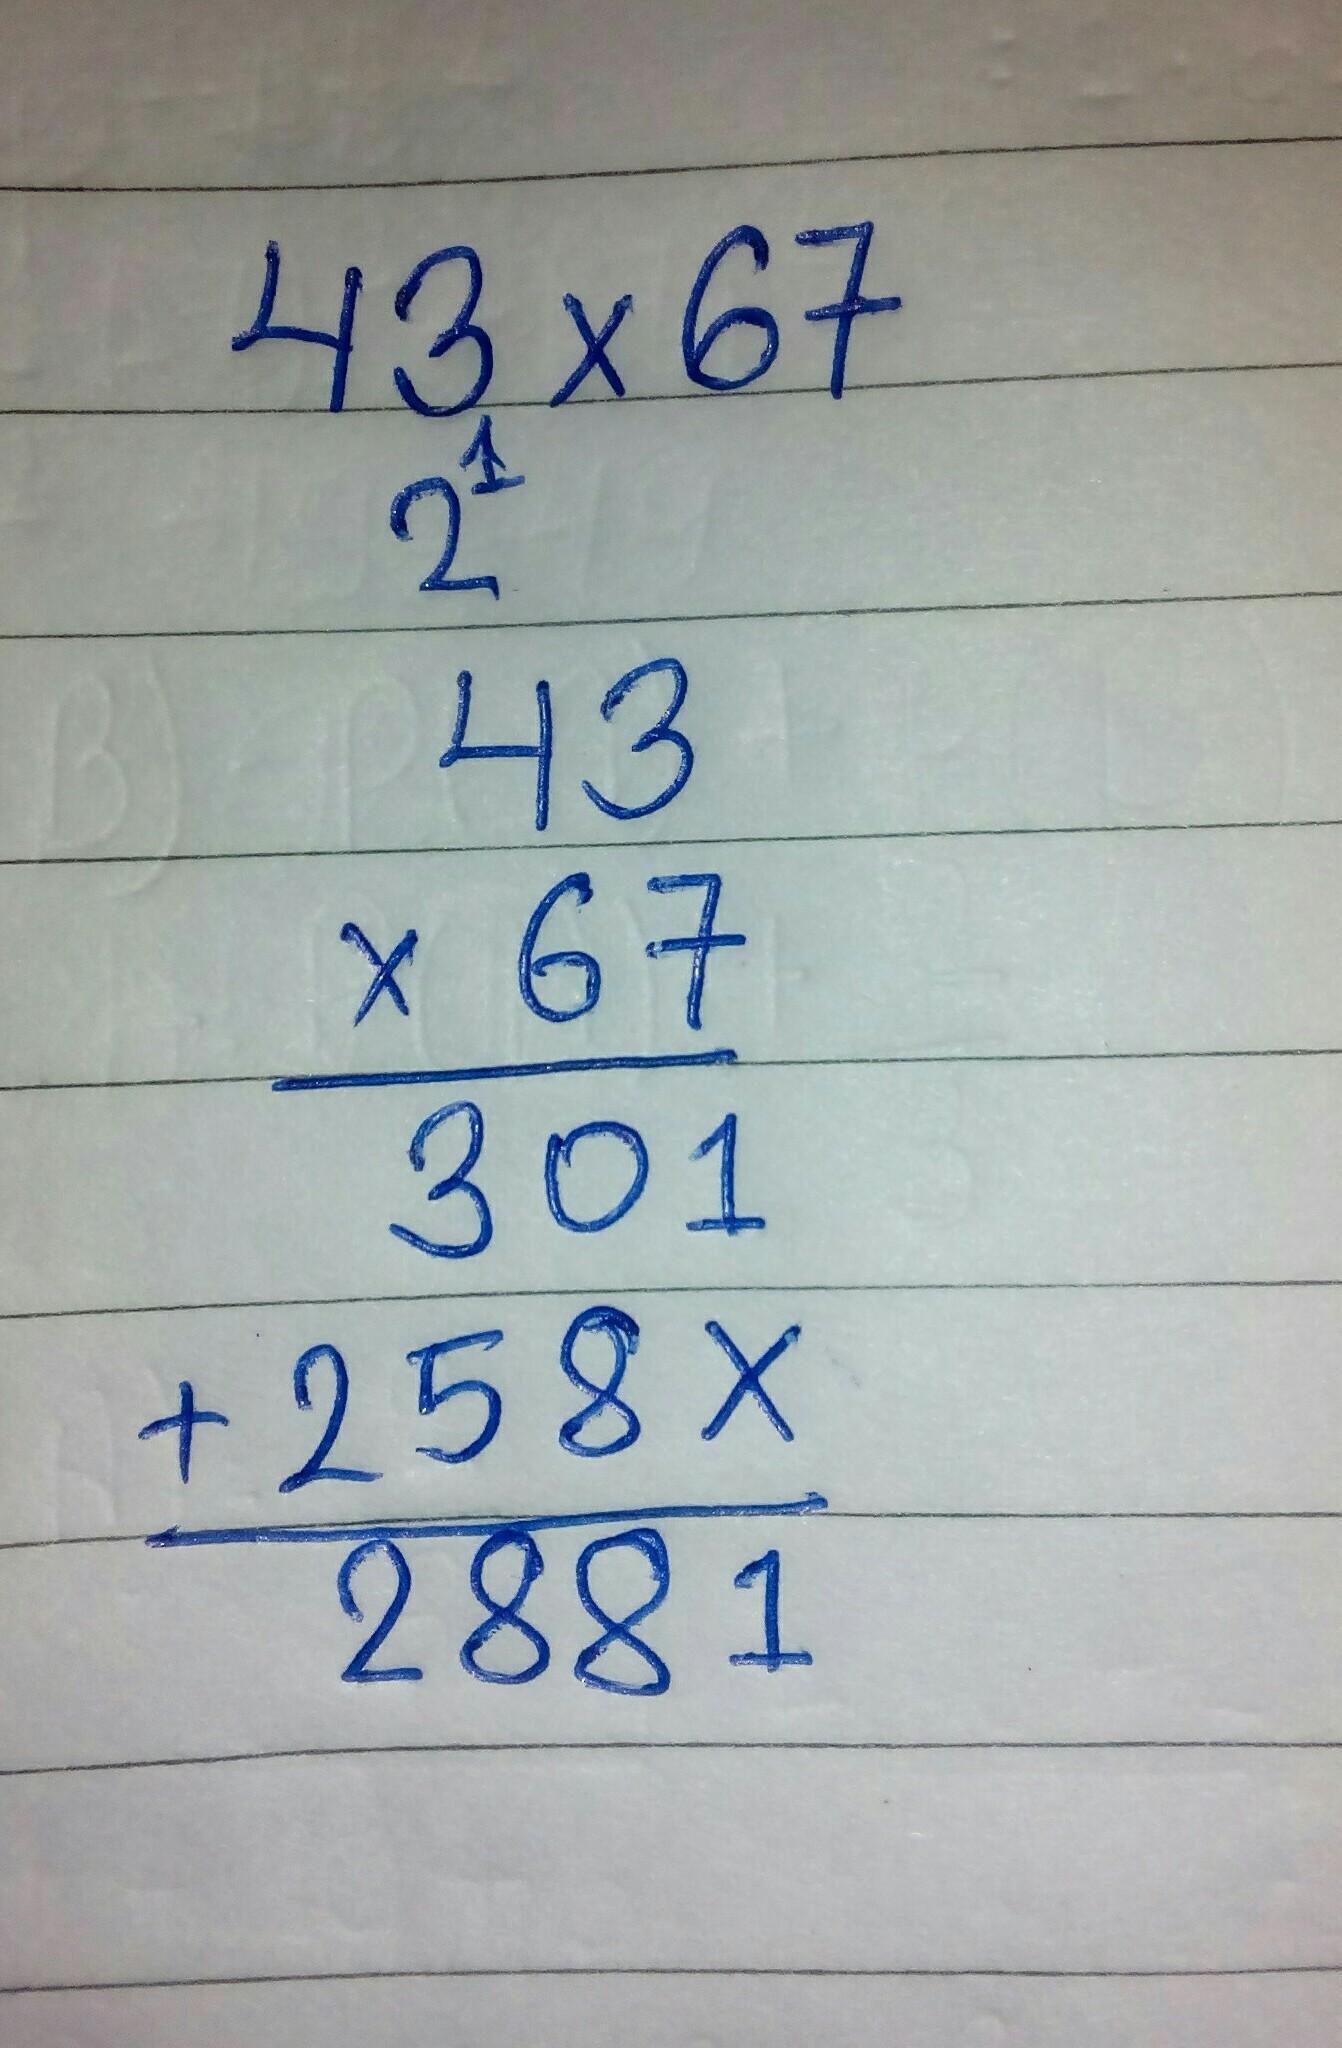 43 x 67
2 1
43
x 67
301
+ 258 X
2881